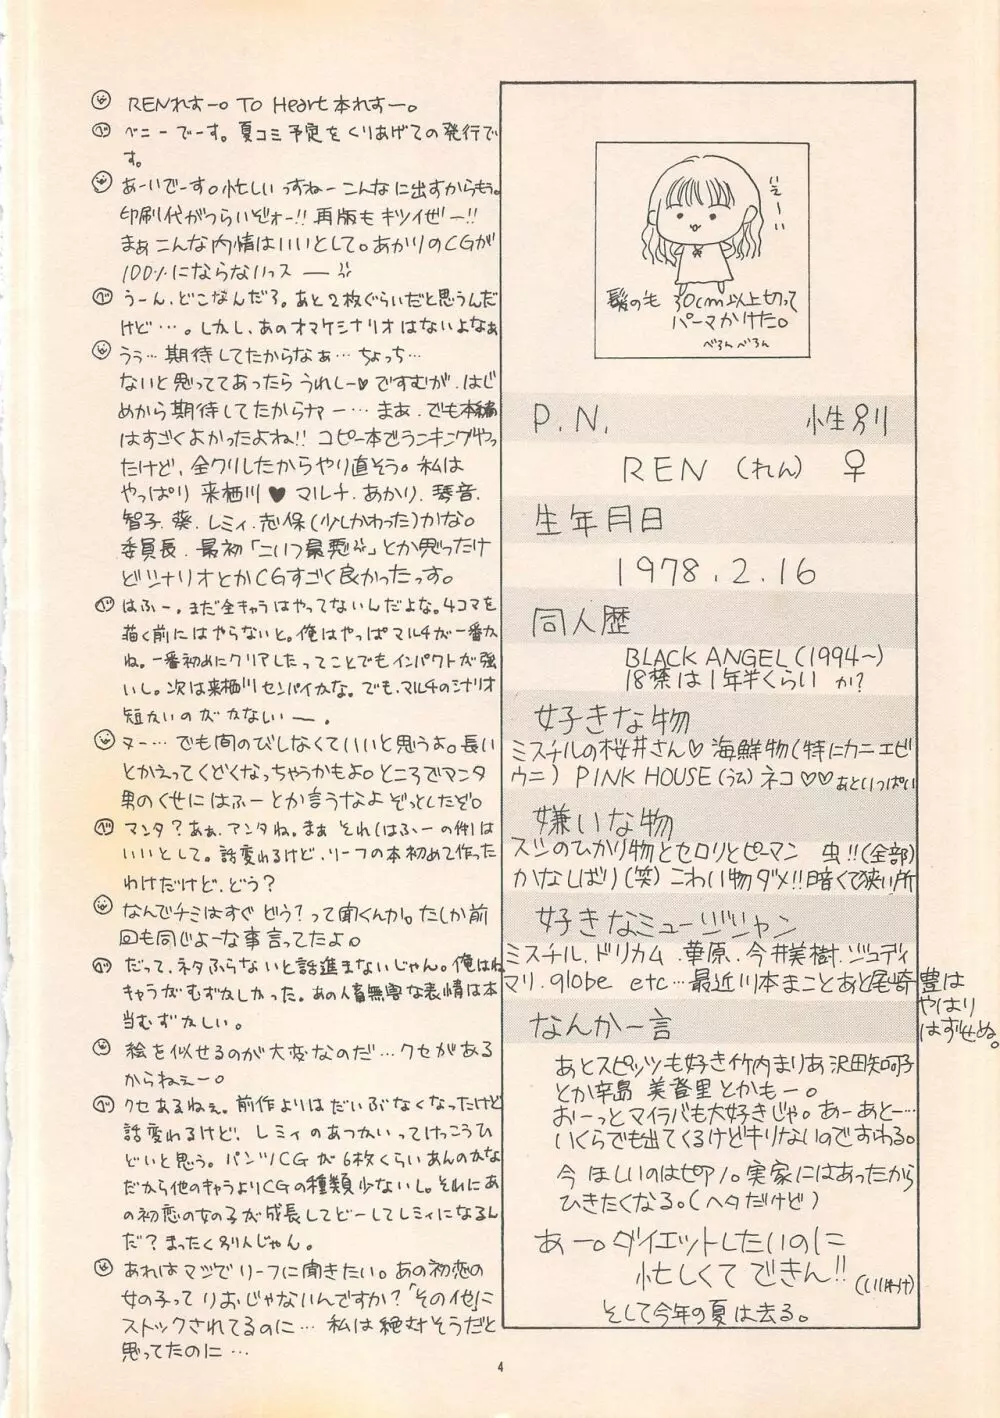 RENれすー。To Heart本れすー。
ベニーでーす。夏コミ予定をくりあげての発行で
す。
あーいでーす。忙しいっすねーこんなに出すからもぅ。
印刷代がつらいぞォー!!再版もキツイぜー!!
まぁこんな内情はいいとして。あかりのCGが
100%にならないっスー
うーん、どこなんだろ。あと2枚ぐらいだと思うんだ
けど…。しかし、あのオマケシナリオはないよなぁ
うぅ…期待してたからなぁ…ちょっち…
ないと思っててあったらうれしー♥ですむが、はじ
めから期待してたからナァー…まあ、でも本編
はすごくよかったよね!!コピー本でランキングやっ
たけど、全クリしたからやり直そう。私は
やっぱり来栖川♥マルチ.あかり.琴音.
智子.葵.レミィ.志保(少しかわった)かな。
委員長、最初「こいつ最悪」とか思ったけ
どシナリオとかCGすごく良かったっす。
はふー。まだ全キャラはやってないんだよな。4コマを
描く前にはやらないと。俺はやっぱマルチが一番か
ね。一番初めにクリアしたってことでもインパクトが強
いし。次は来栖川センパイかな。でも、マルチのシナリオ
短かいのがかなしいー。
ヌー…でも間のびしなくていいと思うよ。長い
とかえってくどくなっちゃうかもよ。ところでマンタ
男のくせにはふーとか言うなよぞっとしたぞ。
マンタ?あぁ、アンタね。まぁそれ(はふーの件)は
いいとして。話変わるけど、リーフの本初めて作った
わけだけど、どう?
なんでチミはすぐどう?って聞くんか。たしか前
回も同じよーな事言ってたよ。
だって、ネタふらないと話進まないじゃん。俺はね
キャラがむずかしかった。あの人畜無害な表情は本
当むずかしい。
絵を似せるのが大変なのだ…クセがある
からねぇー。
クセあるねぇ。前作よりはだいぶなくなったけど
話変わるけど、レミィのあつかいってけっこうひ
どいと思う。パンツCGが6枚くらいあんのかな
だから他のキャラよりCGの種類少ないし。それにあ
の初恋の女の子が成長してどーしてレミィになるん
だ?まったく別人じゃん。
あれはマジでリーフに聞きたい。あの初恋の
女の子ってりおじゃないんですか?「その他」に
ストックされてるのに…私は絶対そうだと
思ってたのに…
いえーい
髪の毛30cm以上切って
パーマかけた。
べろんべろん
P.N. 性別
REN(れん) ♀
生年月日
1978.2.16
同人歴
BLACK ANGEL(1994〜)
18禁は1年半くらいか?
好きな物
ミスチルの桜井さん♡海鮮物(特にカニエビ
ウニ) PINK HOUSE(うム)ネコ♡♡あといっぱい
嫌いな物
スシのひかり物とセロリとピーマン 虫!!(全部)
かなしばり(笑)こわい物ダメ!!暗くて狭い所
好きなミュージシャン
ミスチル.ドリカム.華原.今井美樹.ジュディ
マリ.globe etc…最近川本まことあと尾崎豊は
やはり
はずせぬ。
なんか一言
あとスピッツも好き竹内まりあ沢田知可子
とか辛島美登里とかもー。
おーっとマイラバも大好きじゃ。あーあとー…
いくらでも出てくるけどキリないのですわる。
今ほしいのはピアノ。実家にはあったから
ひきたくなる。(ヘタだけど)
あー。ダイエットしたいのに
忙しくてできん!!(いいわけ)
そして今年の夏は去る。
4